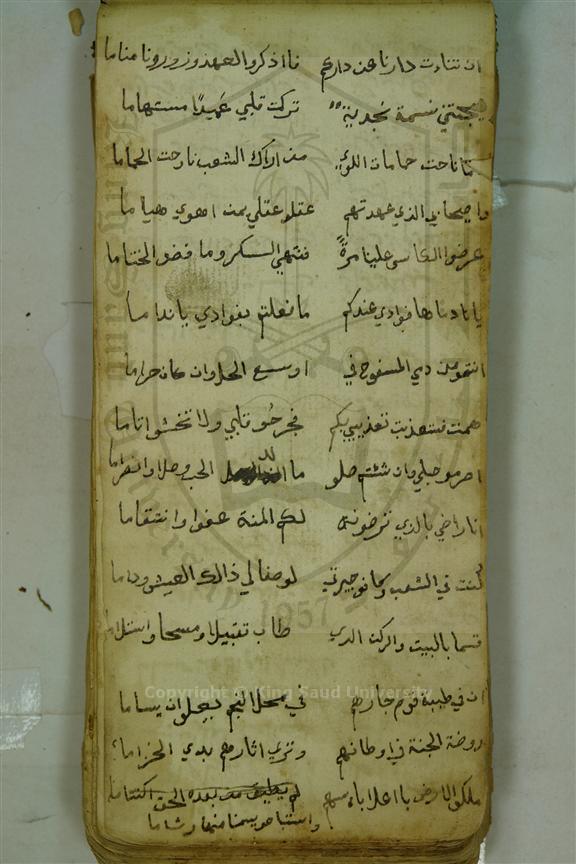 ان تناءت دارنا عن داركم فااذكروا العهد وزورونا مناما
هيجتني نسمة نجدية تركت قلبي عميدًا مستهاما
ناحت حمامات اللوى من اراك الشعب ناوحت الحماما
واصحابي الذي عهدتهم عقلو عقلي بمن اهوى هياما
عرضوا الكاس علينا مرةً فنتهي السكر وما فضو الختاما
يا نداماها فوادي عندكم ما فعلتم بفوادي يا نداما
دمي المسفوح في اوسع الحل وان كان حراما
همت نستعذب تعذيبي بكم فجرحو قلبي ولا تخشوا اثاما
احرمو حبلي وان شئتم صلو ما الحب وصلا وانصراما
انا راضي بالذي ترضونه لكم المنة عفوا وانتقاما
كنت في الشعب وكانو جيرتي لو صفا لي ذالك العيش وداما
قسما بالبيت والركن الذي طاب تقبيلا ومسحا واستلاما
ان في طيبة قوم جارهم في محل النجم يعلو ان يساما
روضة الجنة في اوطانهم وترى اثارهم بدي الخزاما
ملكو الارض با اعلا باسهم
واستباحو يمنا منها وشاما
Copyright © King Saud University
1957